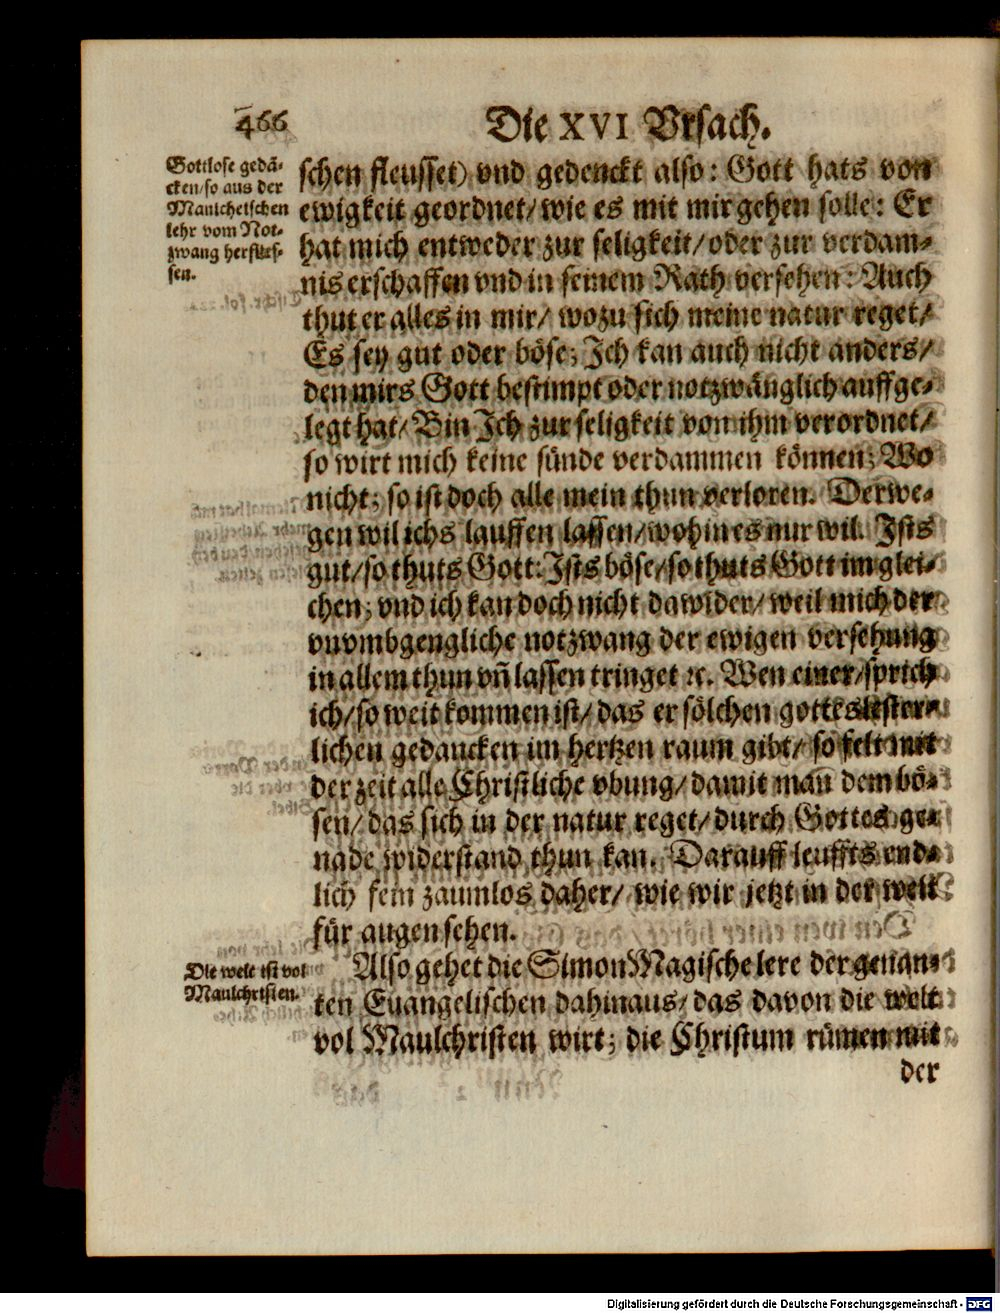 466
Die XVI Vrsach.
Gottlose gedä-
cken/so aus der
Manicheischen
lehr vom Not-
zwang herflies-
sen.
schen fleusset) vnd gedenckt also: Gott hats von
ewigkeit geordnet/wie es mit mir gehen solle: Er
hat mich entweder zur seligkeit/oder zur verdam-
nis erschaffen vnd in seinem Rath versehen: Auch
thut er alles in mir/ wozu sich meine natur reget/
Es sey gut oder böse; Ich kan auch nicht anders/
den mirs Gott bestimpt oder notzwänglich auffge-
legt hat/ Bin Ich zur seligkeit von ihm verordnet/
so wirt mich keine sünde verdammen können; Wo
nicht; so ist doch alle mein thun verloren. Derwe-
gen wil ichs lauffen lassen/wohin es nur wil. Ists
gut/so thuts Gott: Ists böse/so thuts Gott im glei-
chen; vnd ich kan doch nicht dawider/ weil mich der
vnvmbgengliche notzwang der ewigen versehung
in allem thun vñ lassen tringet ꝛc. Wen einer/sprich
ich/so weit kommen ist/ das er sölchen gotteslester-
lichen gedancken im hertzen raum gibt/ so felt mit
der zeit alle Christliche vbung/damit man dem bö-
sen/ das sich in der natur reget/durch Gottes ge-
nade widerstand thun kan. Darauff leuffts end-
lich fein zaumlos daher/ wie wir jetzt in der welt
für augen sehen.
Die welt ist vol
Maulchristen.
Also gehet die SimonMagische lere der genan-
ten Euangelischen dahinaus/das davon die welt
vol Maulchristen wirt; die Christum rümen mit
der
Digitalisierung gefördert durch die Deutsche Forschungsgemeinschaft - DFG